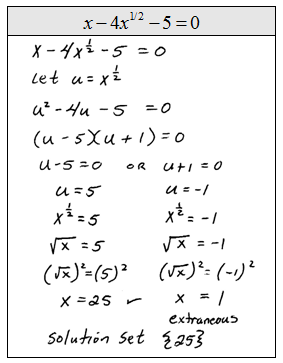 x – 4x^{1/2} – 5 = 0
x - 4x^{1/2} - 5 = 0
Let u = x^{1/2}
u² - 4u - 5 = 0
(u - 5)(u + 1) = 0
u - 5 = 0 OR u + 1 = 0
u = 5 u = -1
x^{1/2} = 5 x^{1/2} = -1
√x = 5 √x = -1
(√x)² = (5)² (√x)² = (-1)²
x = 25 ✓ x = 1
extraneous
Solution Set {25}